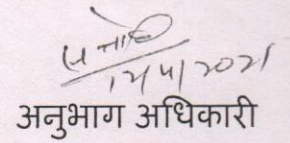 14/5/2021
अनुभाग अधिकारी